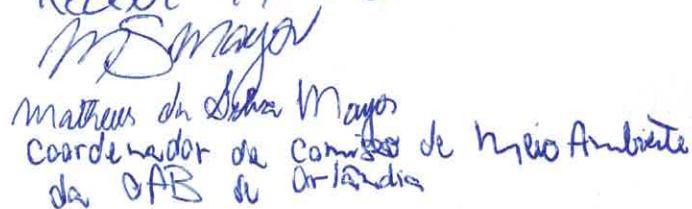 MSMayor
Matheus da Silva Mayor
Coordenador da Comissão de Meio Ambiente
da OAB de Orlândia